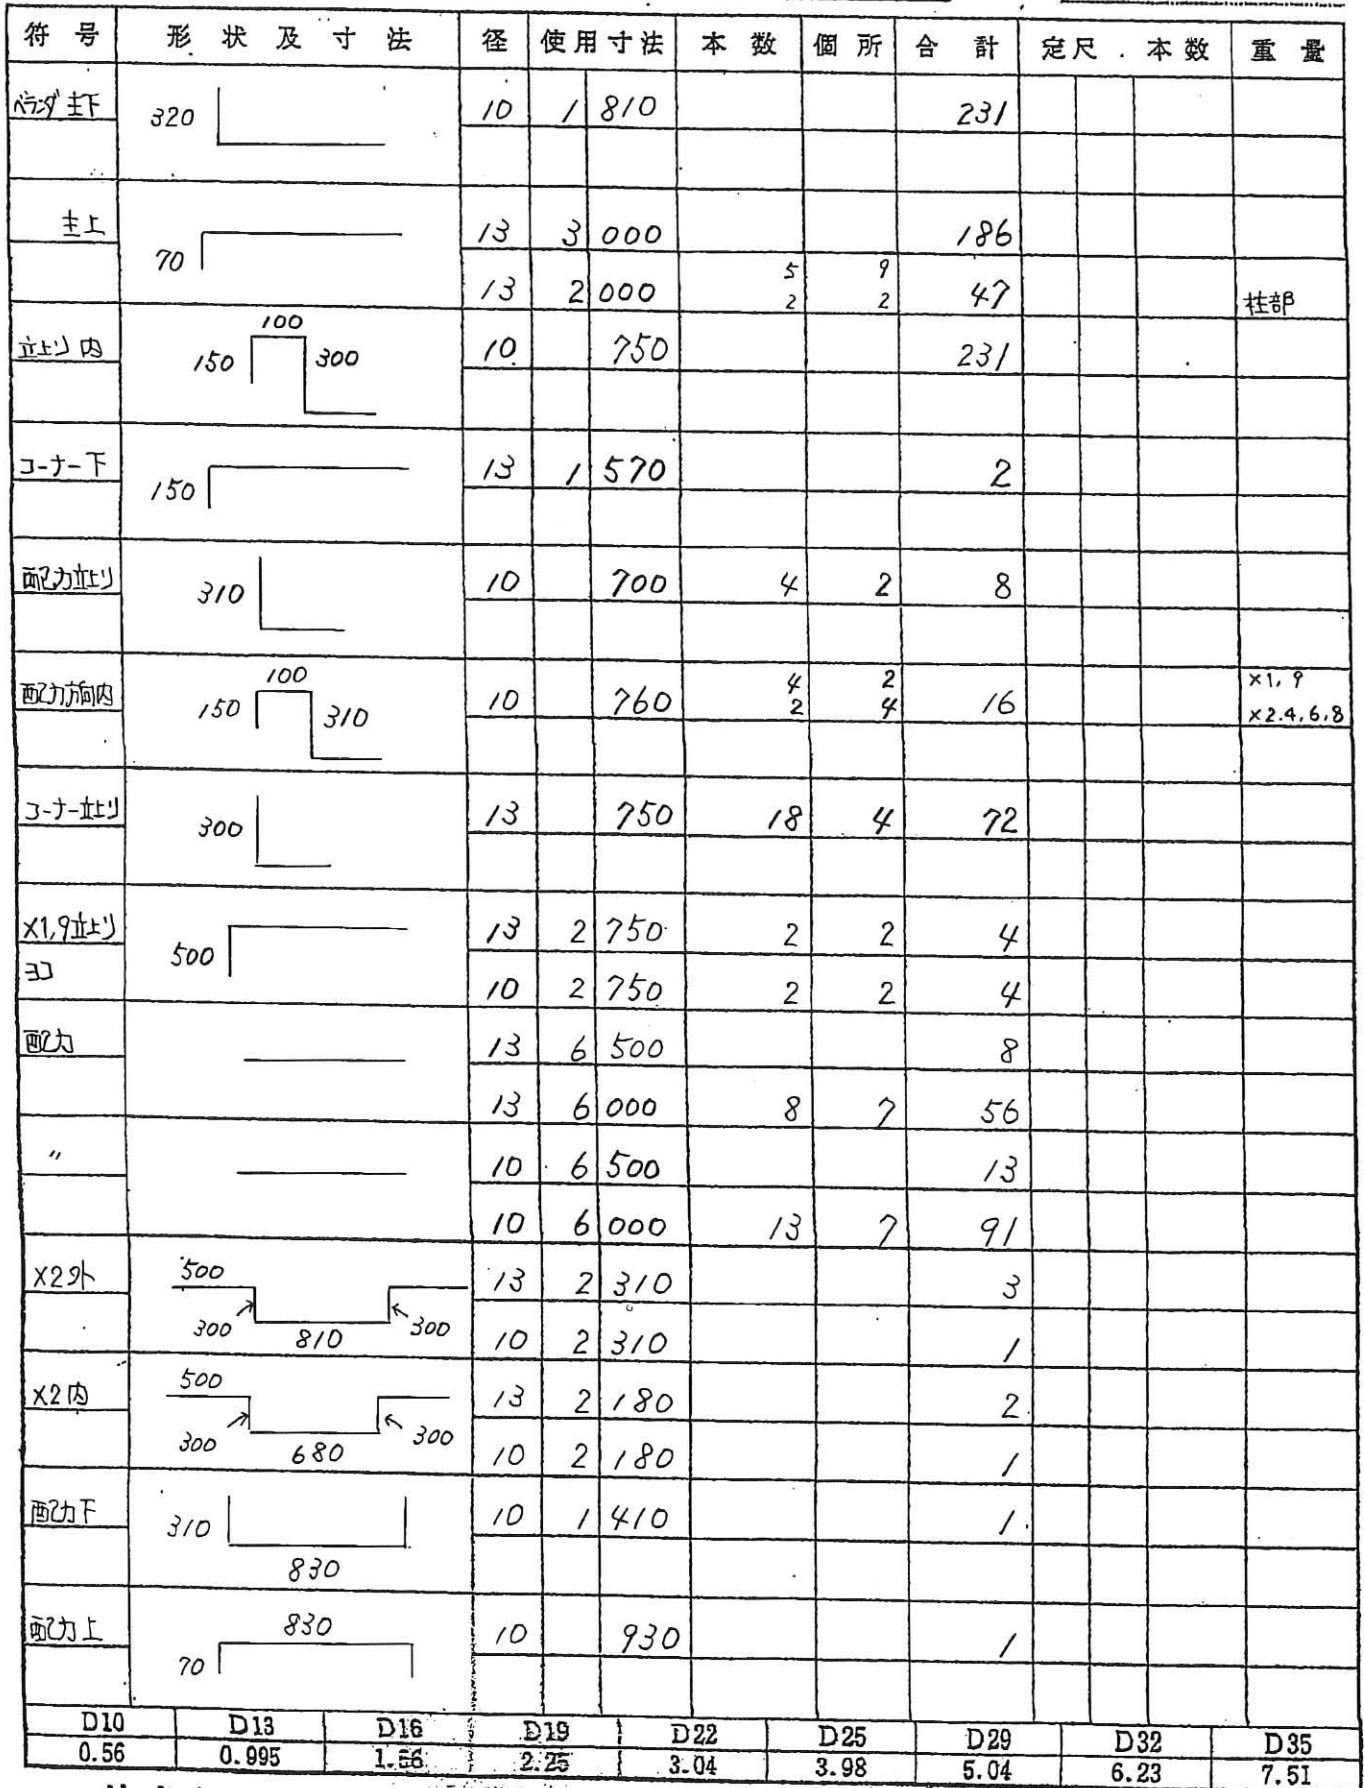 符号 形状及寸法 径 使用寸法 本数 個所 合計 定尺.本数 重量
ベランダ 主下 320 10 1 810 231
主上 70 13 3 000 186
5 9
13 2 000 2 2 47 柱部
立上リ内 100 150 300 10 750 231
コーナー下 150 13 1 570 2
配力立上リ 310 10 700 4 2 8
配力方向内 100 150 310 10 760 4 2 16 ×1,9
2 4 ×2.4,6,8
コーナー立上リ 300 13 750 18 4 72
X1,9立上リ 500 13 2 750 2 2 4
ヨコ 10 2 750 2 2 4
配力 13 6 500 8
13 6 000 8 7 56
〃 10 6 500 13
10 6 000 13 7 91
X2外 500 13 2 310 3
300 810 300 10 2 310 1
X2内 500 13 2 180 2
300 680 300 10 2 180 1
配力下 310 10 1 410 1
830
配力上 830 10 930 1
70
D10 D13 D16 D19 D22 D25 D29 D32 D35
0.56 0.995 1.56 2.25 3.04 3.98 5.04 6.23 7.51